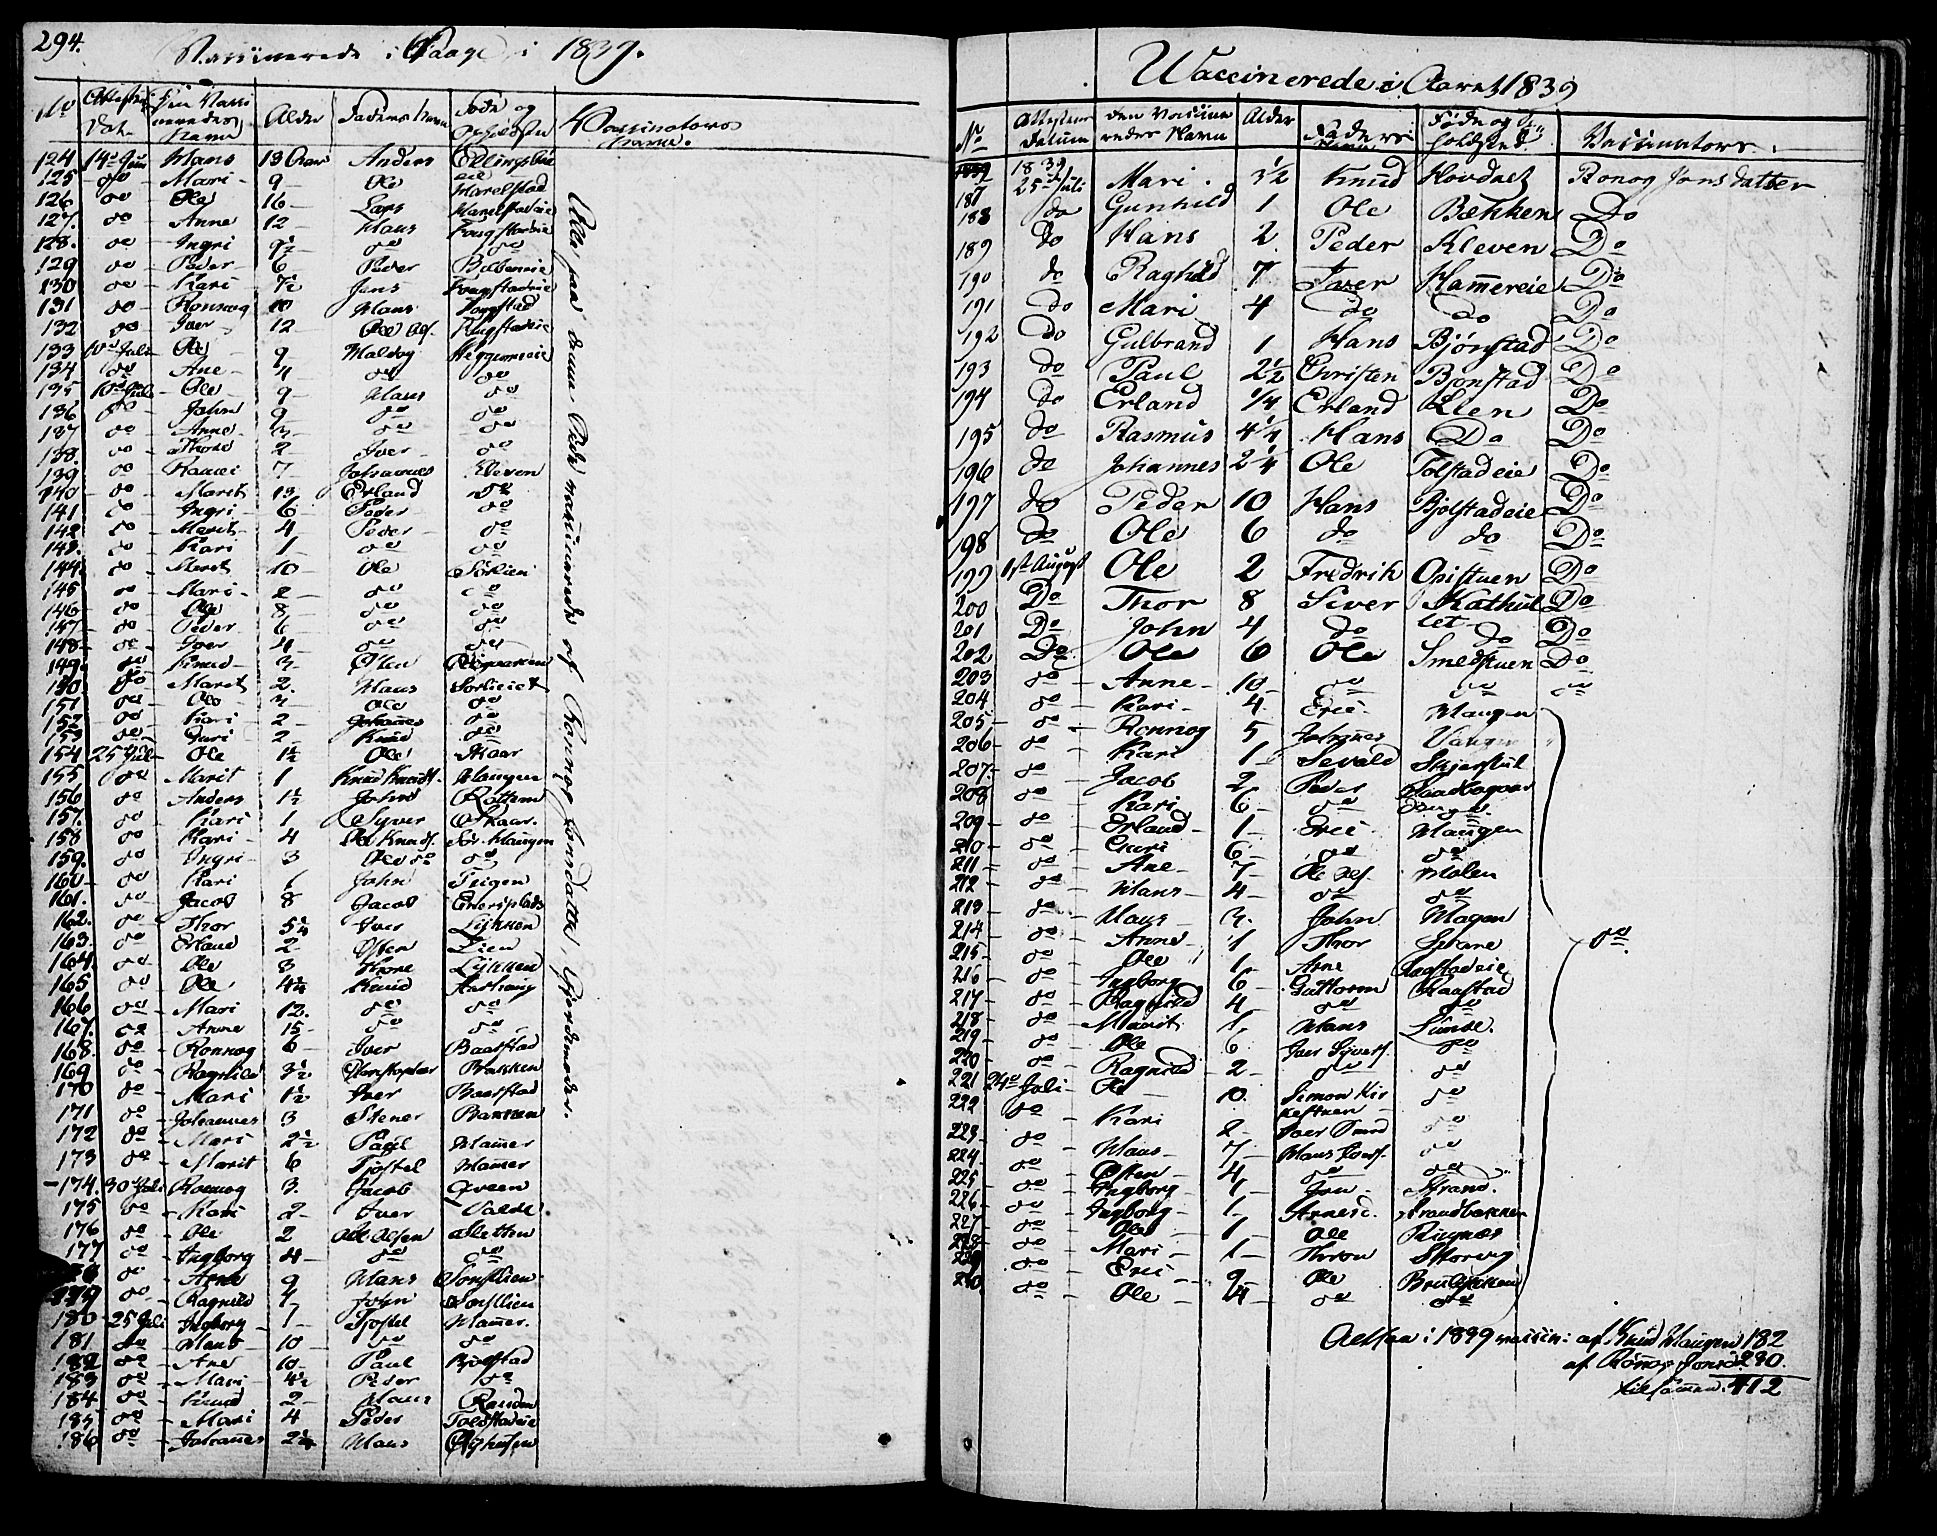 294.
Vaccinerede i Vaage i 1839.
No Attestens Dat. Den Vaccineredes Navn Alder Faderens Navn Føde og Opholdsted Vaccinators Navn.
124 14de Juni Hans 13 Aar Anders Ellingsbøe eie
125 do Mari 9 Ole Harelstad
126 do Ole 16 Lars Harelstadeie
127. do Anne 12 Hans Fougstadeie
128. do Ingri 9½ do do
129 do Peder 6 Peder
130 do Kari 7½ Jens Fougstadeie
131 do Rønnog 10 Hans Fougstad
132 do Iver 12 Ole Ols. Fougstadeie
133 10de Juli Ole 9 Haldog Heggemeie
134 do Ane 4 do do
135 10de Juli Ole 9 Hans do
136 do John 9 do do
137 do Anne 3 do do
138. do Thore 2 Iver do
139 do 7 Johannes Kleven
140 do Marit 13 Erland do
141 do Ingri 6 Peder do
142 do Marit 4 Peder do
143. do Kari 1 do do
144. do Marit 10 Ole Sörlien
145 do Mari 2 do do
146 do Ole 8 do do
147 do Peder 6 do do
148 do Iver 4 do do
149. do Knud 3 Sten
150 do Marit 2. Hans Sorlieiet
151 do Ole 3 Ole do
152 do Kari 2 Johannes do
153 do Guri 2 Knud do
154 25 Jul Ole 1½ Ole Skaar
155 do Marit 1 Knud Knuds. Haugen
156 do Anders 1½ John Rottem
157. do Kari 1 Syver Skaar.
158 do Kari 4 Ole Knuds. Sör-Haugen
159. do Ingri 3 Ole do do
160 do Kari 1 John Teigen
161. do Jacob 8 Jacob
162. do Thor 5¼ Iver Lykken
163. do Erland 2 Østen Lien
164. do Ole 3 Thore Lykken
165 do Ole 4¼ Knud
166 do Mari 12. do do
167. do Anne 15 do do
168. do Rønnog 6 Iver Baarstad
169 do Ragnild 3½ Christopher Bakken
170 do Mari 1½ Iver Baarstad
171 do Johannes 3 Stener Bakken
172 do Mari 2½ Paul Hammer
173 do Marit 6 Tjostel Hammer
174. 30 Juli Rønnog 3. Jacob Qveen
175 do Kari 2 Iver Valde.
176 do Ole 2 Ole Olsen Sletten
177 do Ingborg 4 do do
178 do Arne 9 Hans Sonstlien
179 do Ragnild 7 John Sonstlien
180 25 Juli Ingborg 1 Tjostel Hammer.
181 do Hans 10 do do
182 do Ane 10 Paul Bjölstad
183 do Mari 4½ Peder do
184 do Knud 2 Hans Randen
185 do Mari 4 Peder Tolfstadeie
186 do Johannes 2¼ Hans
Alle paa denne Side vaccinerede af Rønnog Jonsdatter, Gjordemoder.
Waccinerede i Aaret 1839
No Attestens Datum den Vaccineredes Navn Alder Faders Navn Føde og Opholdsted Vaccinators
1839
187 25de Juli Mari. 3½ Knud Hovdal Rønog Jonsdatter
188 do Gunhild 1 Ole Bækken Do
189 do Hans 2 Peder Kleven Do
190 do Raghild 7 Iver Hammereie Do
191 do Mari 4 do do Do
192 do Gulbrand 1 Hans Bjørstad Do
193 do Paul 2½ Christen Bjonstad Do
194 do Erland ¼ Erland Lien Do
195 do Rasmus 4¼ Hans Do Do
196 do Johannes 2¼ Ole Tolstadeie Do
197 do Peder 10 Hans Bjolstadeie Do
198 do Ole 6 do do Do
199 1st August Ole 2 Fredrik Do
200 Do Thor 8 Siver Do
201 Do John 4 do do Do
202 Do Ole 6 Ole Smedstuen Do
203 do Anne 10 do do do
204 do Kari 4 Eric Haugen
205 do Rønnog 5 Johannes
206 do Kari 1 Sevald
207. do Jacob 2 Peder
208 do Kari 6 do do
209 do Erland 1 Eric Haugen
210 do Guri 6 do do
211 do Ane 7 Ole Ols. Holen
212 do Hans 4 do do
213 do Hans 3. John Hagen
214 do Anne 1 Thor
215 do Ole 1 Arne Raastadeie do
216 do Ingborg 6 Guttorm Raastad
217 do Ragnild 4 do do
218 do Marit 1 Hans Sunde.
219 do Ole 6 Iver Syvers. do
220 do Ragnild 2 do do
221 24de Juli Ole 10 Simon Kirkestuen do
222 do Kari 2 Iver do
223 do Hans 7 Hans do
224 do Østen 4 do do
225 do Ingborg 1 Jon Strand.
226 do Ingborg 1 Strandbakken
227 do Ole 1 Ole Ringnæs
228 do Mari 1 Thron
229 do Eric 9 Ole
230. do Ole 4 do do
Altsaa i 1839 vaccin: af Knud Haugen 182
af Rønnog Jonsd. 230.
tilsammen. 412